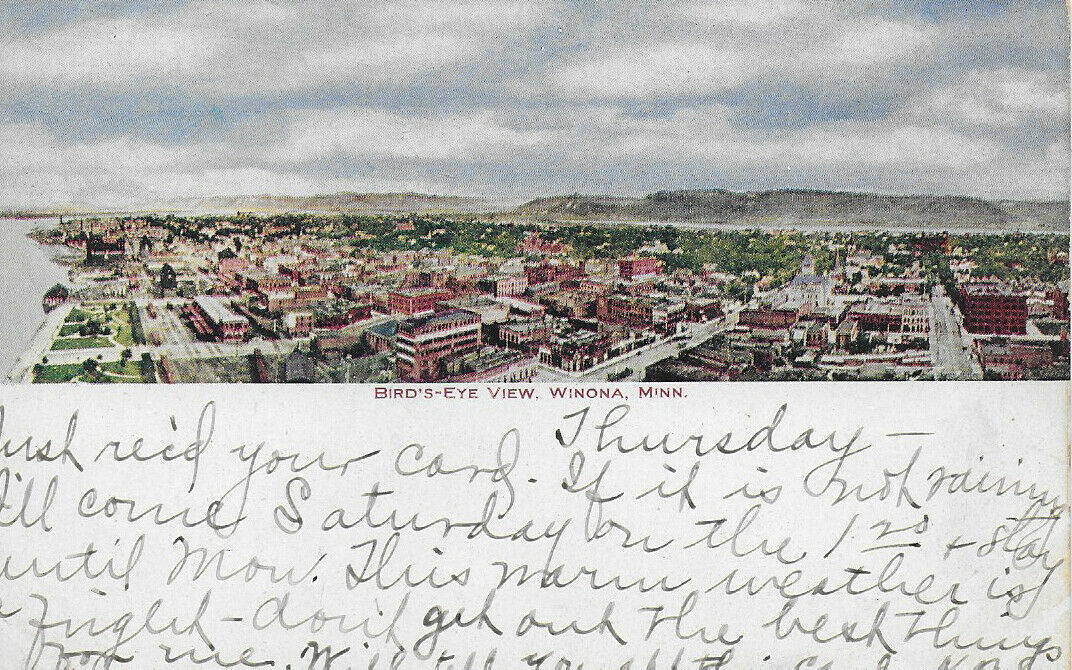 BIRD'S-EYE VIEW, WINONA, MINN.
Thursday —
ust rec'd your card. If it is not raining
'll come Saturday on the 1 20 + stay
until Mon. This warm weather is
a fright - don't get out the best things
for me. Will tell you